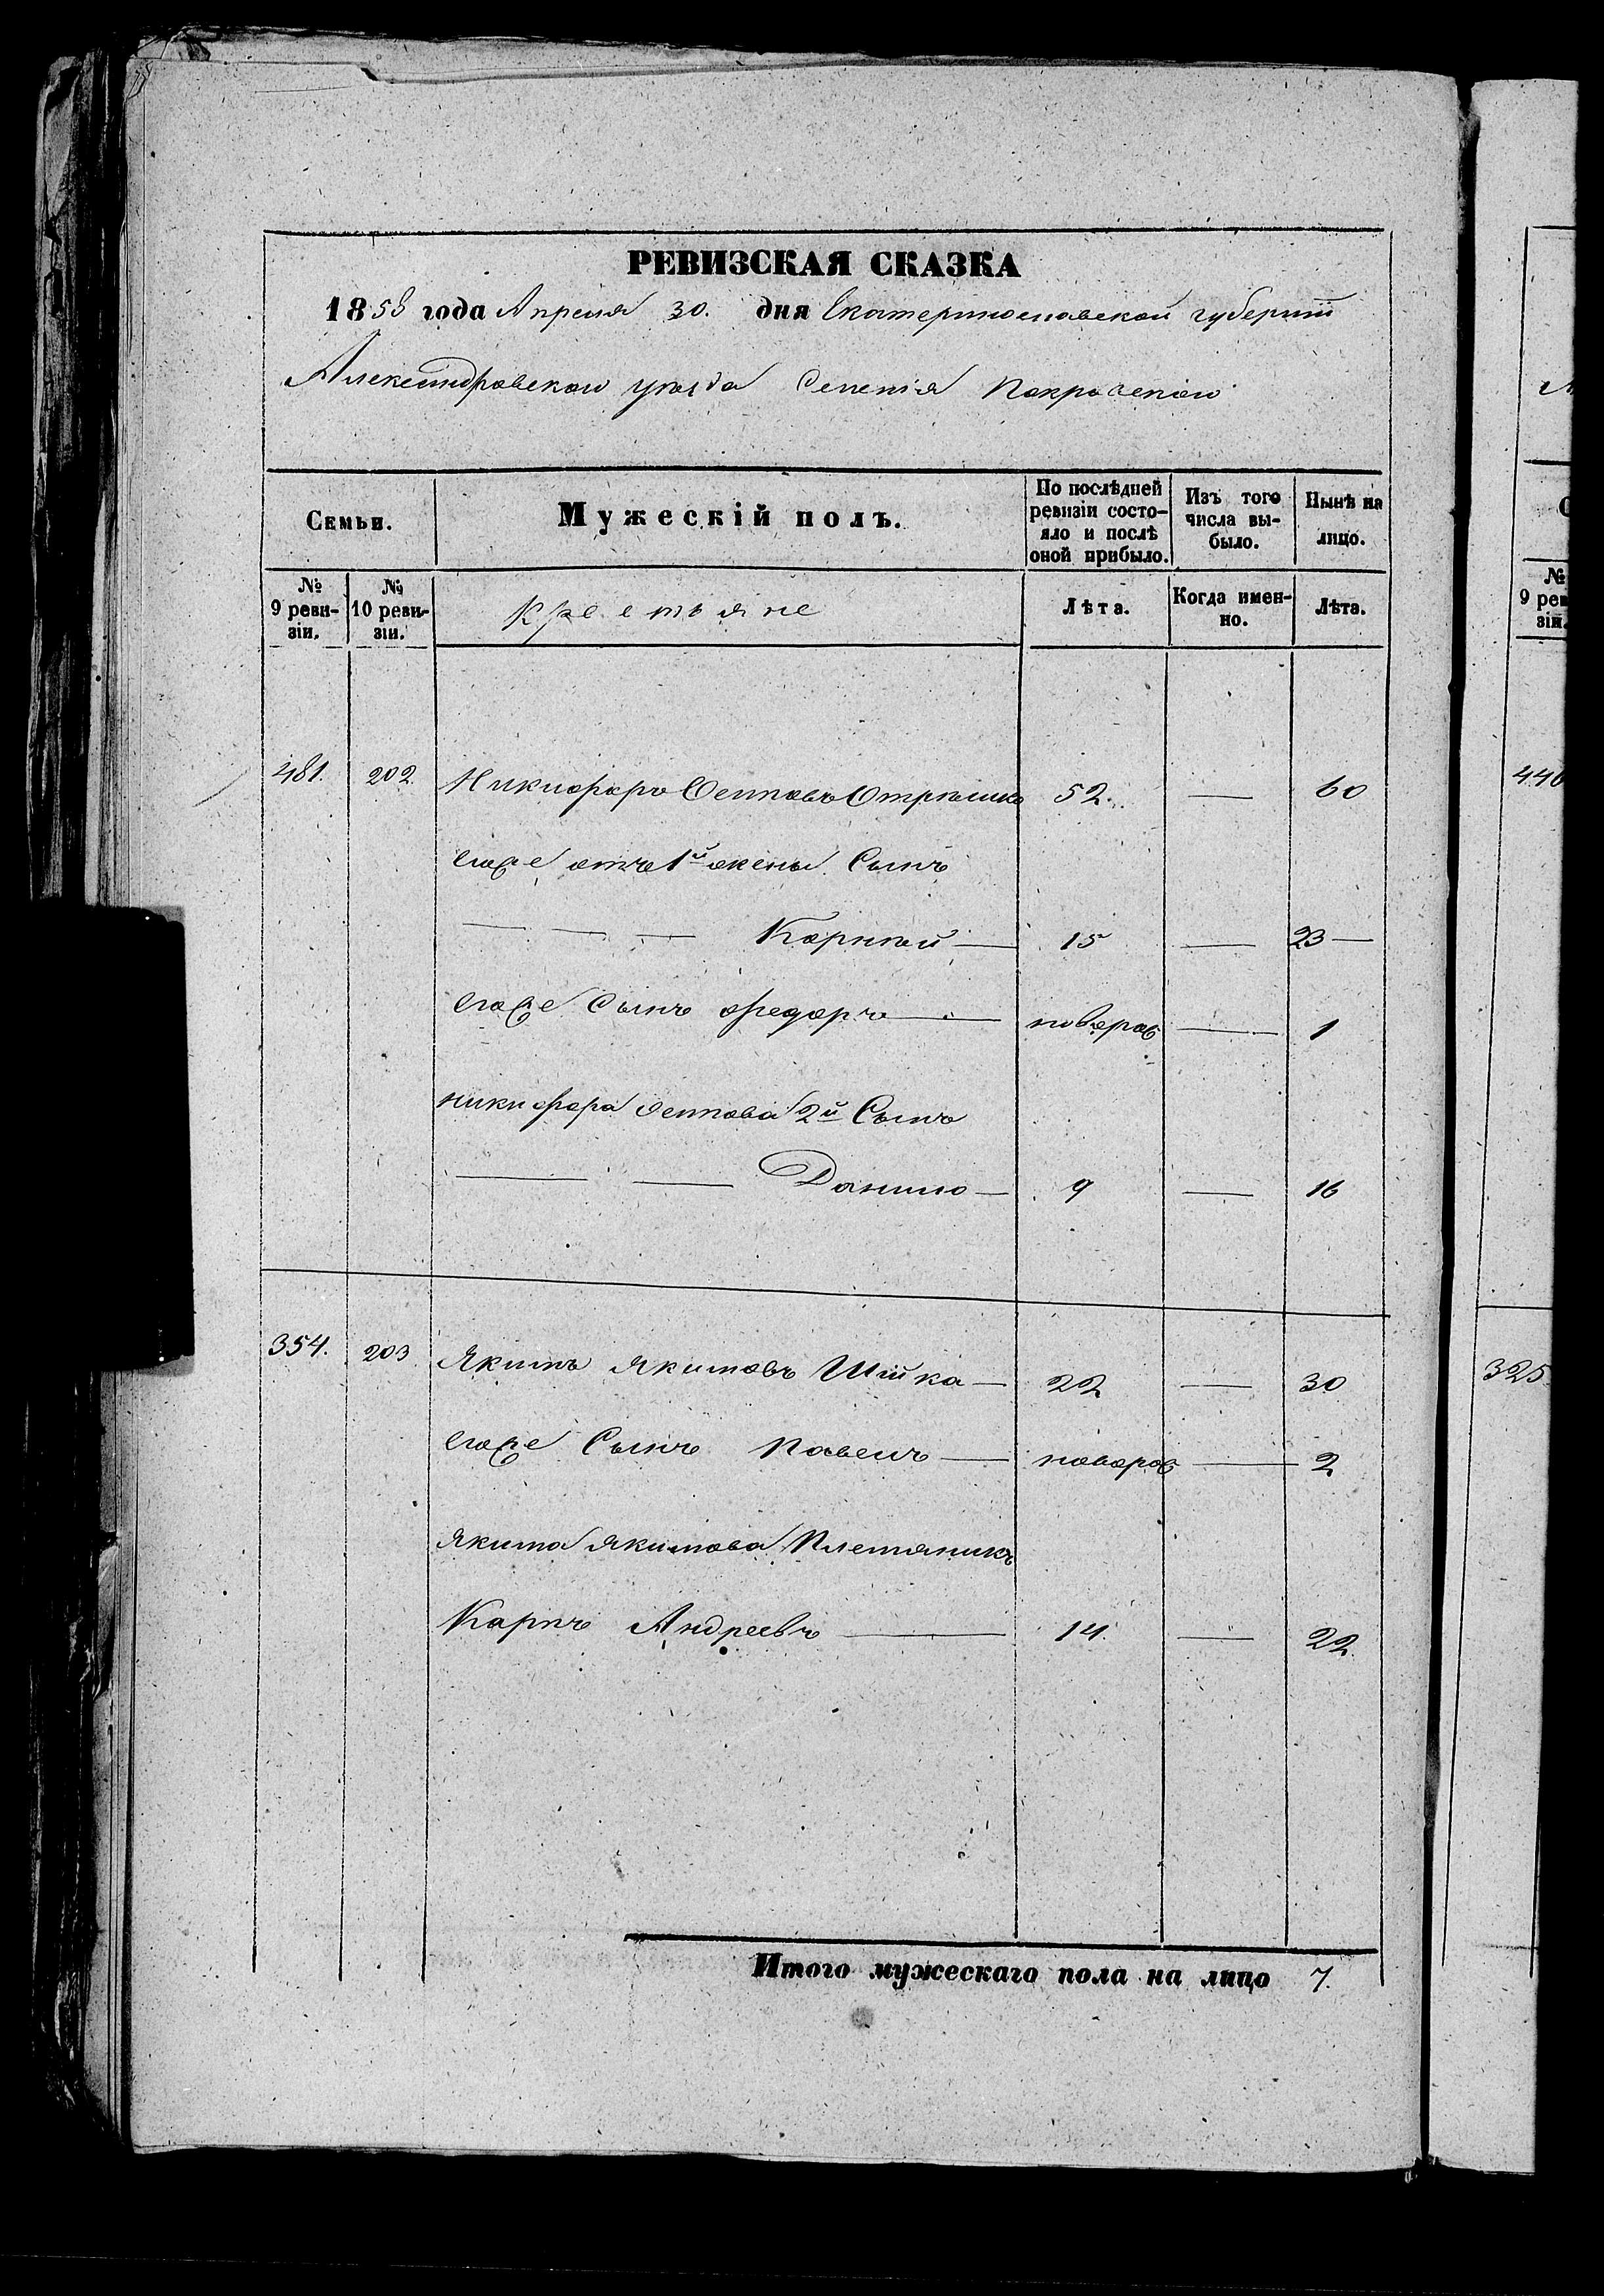 РЕВИЗСКАЯ СКАЗКА
1858 года Апреля 30. дня Екатеринославской губернiи
Александровскаго уѣзда Селенiя Покровскаго
Семьи.
Мужескiй полъ.
По послѣдней ревизiи состо-
яло и послѣ оной прибыло.
Изъ того числа вы-
было.
Нынѣ на лицо.
№ 9 реви-
зiи.
№ 10 реви-
зiи.
Крестьяне
Лѣта.
Когда имен-
но.
Лѣта.
481. 202. Никифоръ 52. — 60
егоже отъ 1й жены Сынъ
— — — Корнѣй — 15 — 23 —
егоже Сынъ Федоръ — новорож — 1
никифора 2й Сынъ
— — Данило — 9 — 16
354. 203. Якимъ Якимовъ Шійка — 22 — 30
егоже Сынъ Павелъ — новорож — 2
Якима Якимова Племяникъ
Карпъ Андреевъ — 14. — 22.
Итого мужескаго пола на лицо 7.
№
9 рев
зiи.
446
325.